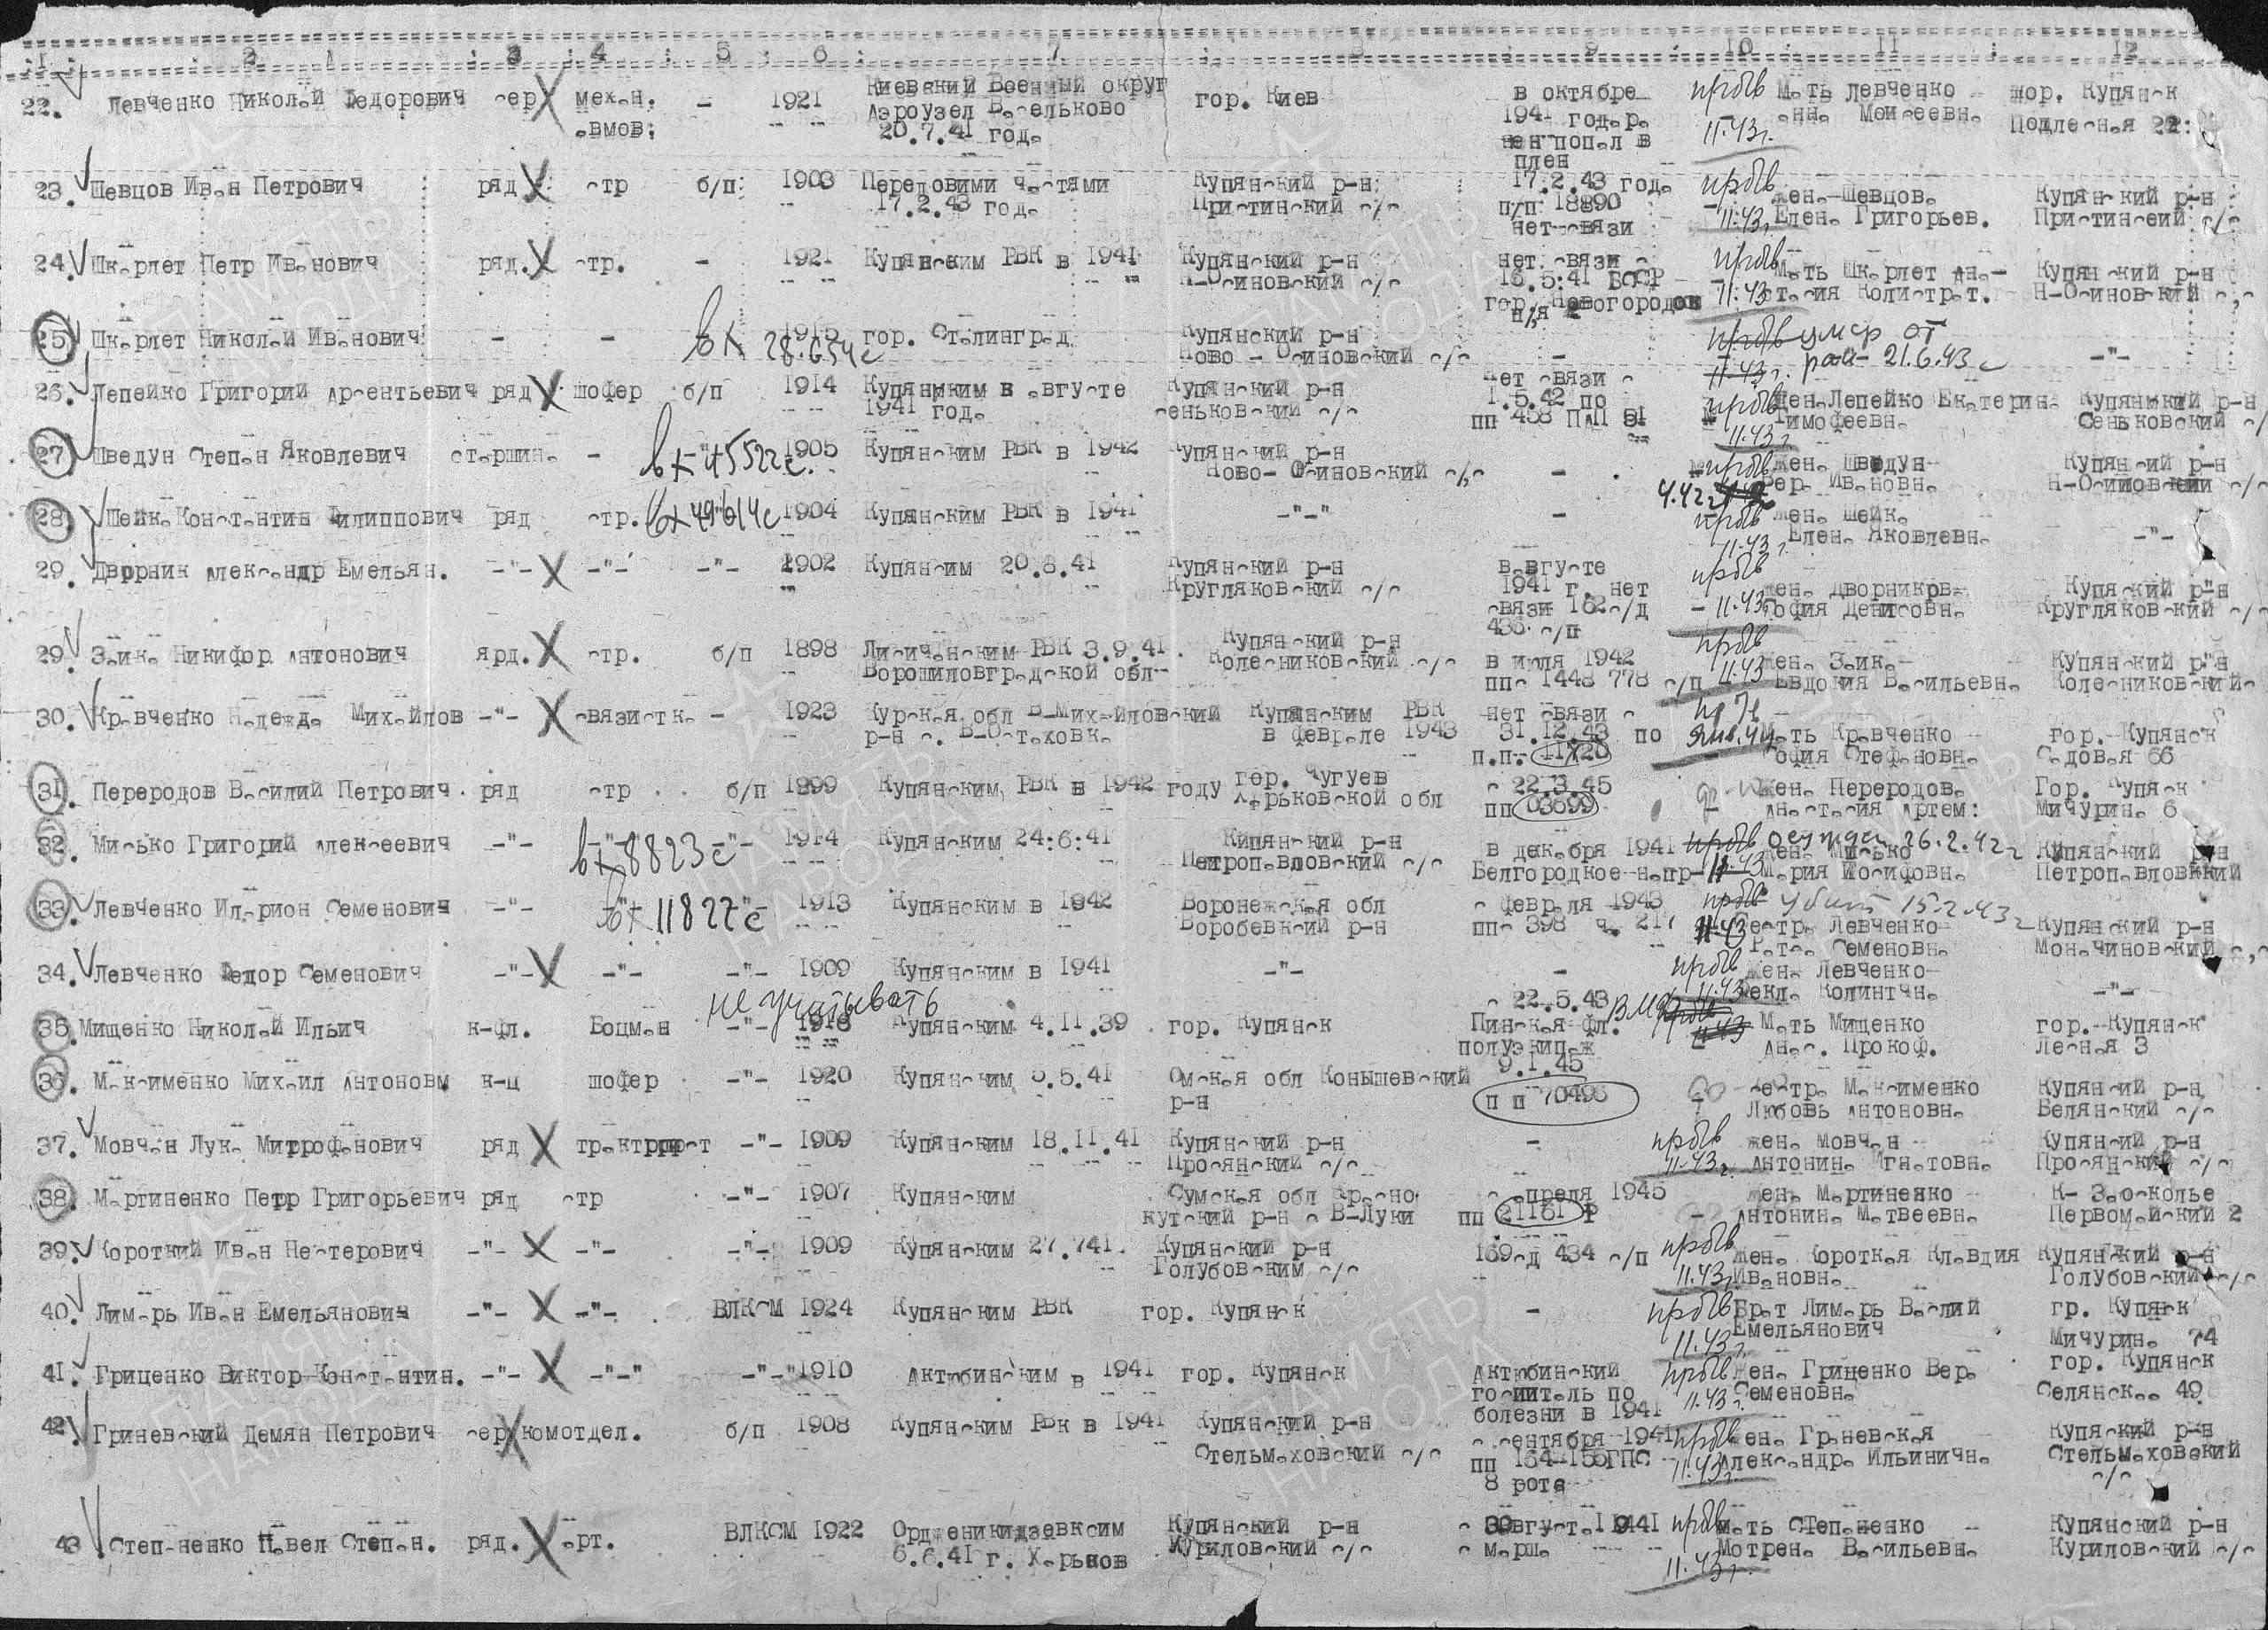 1 2 3 4 5 6 7 8 9 10 11 12
22. Левченко Николай Федорович сер механ. - 1921 Киевский Военный округ гор. Киев в октябре прбв Мать Левченко гор. Купянск
авмов. Аэроузел Васельково 1941 года р. 11.43г. Анна Моисеевна Подлесная 22
20.7.41 года нен попал в
плен
23. Шевцов Иван Петрович ряд стр б/п 1903 Передовими частями Купянский р-н 17.2.43 года прбв жена Шевцова Купянский р-н
17.2.43 года Пристинский с/с п/п 18890 11.43г. Елена Григорьев. Пристинский с/с
нет связи
24. Шкарлет Петр Иванович ряд. стр. - 1921 Купянским РВК в 1941 Купянский р-н нет связи с прбв Мать Шкарлет Ана- Купянский р-н
Н-Осиновский с/с 16.5.41 БССР 11.43 стасия Калистрат. Н-Осиновский с/с
гор. Новогородок
п/я 2
25. Шкарлет Николай Иванович - - вх 28.654с 1915 гор. Сталинград Купянский р-н - прбв умер от
Ново-Осиновский с/с 11.43г. ран 21.6.43 -"-
26. Лепейко Григорий Арсентьевич ряд шофер б/п 1914 Купянским в августе Купянский р-н нет связи с прбв жена Лепейко Екатерина Купянский р-н
1941 года Сеньковский с/с 1.5.42 по Тимофеевна Сеньковский с/
пп 458 ПАП 11.43г.
27. Шведун Степан Яковлевич старшина - вх 45522с. 1905 Купянским РВК в 1942 Купянский р-н - прбв жена Шведун Купянский р-н
Ново-Осиновский с/с 4.42г Вера Ивановна Н-Осиновский с/с
28. Шейка Константин Филиппович ряд стр. вх 49614с 1904 Купянским РВК в 1941 -"-" - прбв жена Шейка
11.43г. Елена Яковлевна -"-
29. Дворник Александр Емельян. -"- -"- -"- 1902 Купянсим 20.8.41 Купянский р-н в августе прбв жена Дворникова Купяский р-н
Кругляковский с/с 1941 г. нет 11.43г. София Денисовна Кругляковский с/с
связи 162 с/д
436 с/п
29. Заика Никифор Антонович ярд. стр. б/п 1898 Лисичанским РВК 3.9.41. Купянский р-н в июля 1942 прбв жена Заика Купянский р-н
Ворошиловградской обл Колесниковский с/с ппс 1448 778 с/п 11.43 Евдокия Васильевна Колесниковский
30. Кравченко Надежда Михайлов -"- связистка - 1923 Курская обл В-Михайловский Купянским РВК нет связи с Мать Кравченко гор. Купянск
р-н с. В-Остаховка в феврале 1943 31.12.43 по Янв.44 София Стефановна Садовая 66
п.п. 11720
31. Переродов Василий Петрович. ряд стр б/п 1899 Купянским РВК в 1942 году гор. Чугуев с 22.3.45 жена Переродова Гор. Купяск
Харьковской обл пп 03699 Анастасия Артем: Мичурина 6
32. Мисько Григорий Алексеевич -"- вх 8823с -"- 1914 Купянским 24:6:41 Кипянский р-н в декабря 1941 прбв осужден 26.2.42г Купянский р-н
Петропавловский с/с Белгородкое напр- 11.43 жена Мисько Мария Иосифовна Петропавловкий
33. Левченко Иларион Семенович -"- вх 11827с 1913 Купянским в 1942 Воронежская обл с февраля 1943 прбв убит 15.2.43г
Воробевкий р-н ппс 398 ч. 217 11.43 сестра Левченко Купянский р-н
Рата Семеновна Моначиновский с/с
34. Левченко Федор Семенович -"- -"- -"- 1909 Купянским в 1941 -"- - прбв жена Левченко
11.43 Фекла Колинтчна -"-
35. Мищенко Николай Ильич к-фл. Боцман не учитывать -"- 1918 Купянским 4.11.39 гор. Купянск с 22.5.43 ВМФ Мать Мищенко гор. Купянск
Пинская фл. 11.43 Анас. Прокоф. Лесная 3
полуэкипаж
36. Максименко Михаил Антоновм к-ц шофер -"- 1920 Купянским 5.5.41 Омская обл Конышевский 9.1.45 сестра Максименко Купянсий р-н
р-н п п 70495 Любовь Антоновна Белянский с/с
37. Мовчан Лука Митрофанович ряд трактррист -"- 1909 Купянским 18.11.41 Купянский р-н - прбв жена Мовчан Купянсий р-н
Просянский с/с 11.43г. Антонина Игнатовна Просянский с/с
38. Мартиненко Петрр Григорьевич ряд стр -"- 1907 Купянским Сумская обл Красно с апреля 1945 жена Мартиненко К- Заосколье
кутский р-н с В-Луки пп 21161 Р - Антонина Матвеевна Первомайский 2
39. Короткий Иван Нестерович -"- -"- -"- 1909 Купянским 27.741. Купянский р-н 169сд 434 с/п прбв жена Короткая Клавдия Купянкий р-н
Голубовским с/с 11.43г. Ивановна Голубовский с/с
40. Лимарь Иван Емельянович -"- -"- ВЛКСМ 1924 Купянским РВК гор. Купянск - прбв Брат Лимарь Васлий гр. Купянк
11.43г. Емельянович Мичурина 74
41. Гриценко Виктор Константин. -"- -"-" -"-" 1910 Актюбинским в 1941 гор. Купянск Актюбинский прбв жена Гриценко Вера гор. Купянск
госпиталь по 11.43г. Семеновна Селянск.. 49
болезни в 1941
42. Гриневский Демян Петрович сер комотдел. б/п 1908 Купянским РВк в 1941 Купянский р-н с сентября 1941 прбв жена Граневская Купяский р-н
Стельмаховский с/с пп 164-155ГПС 11.43г. Александра Ильинична Стельмаховский
8 рота с/с
43. Степаненко Павел Степан. ряд. арт. ВЛКСМ 1922 Ордженикидзевксим Купянский р-н с 30августа1941 прбв мать Степаненко Купянский р-н
6.6.41 г. Харьков Куриловский с/с с марша 11.43г. Мотрена Васильевна Куриловский с/с
ПАМЯТЬ НАРОДА